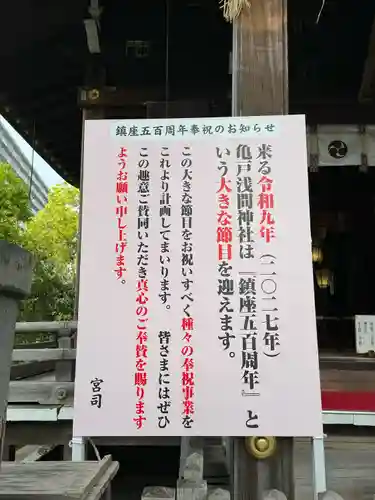 鎮座五百周年奉祝のお知らせ
来る令和九年(二〇二七年)
亀戸浅間神社は『鎮座五百周年』と
いう大きな節目を迎えます。
この大きな節目をお祝いすべく種々の奉祝事業を
これより計画してまいります。 皆さまにはぜひ
この趣意ご賛同いただき真心のご奉賛を賜ります
ようお願い申し上げます。
宮司